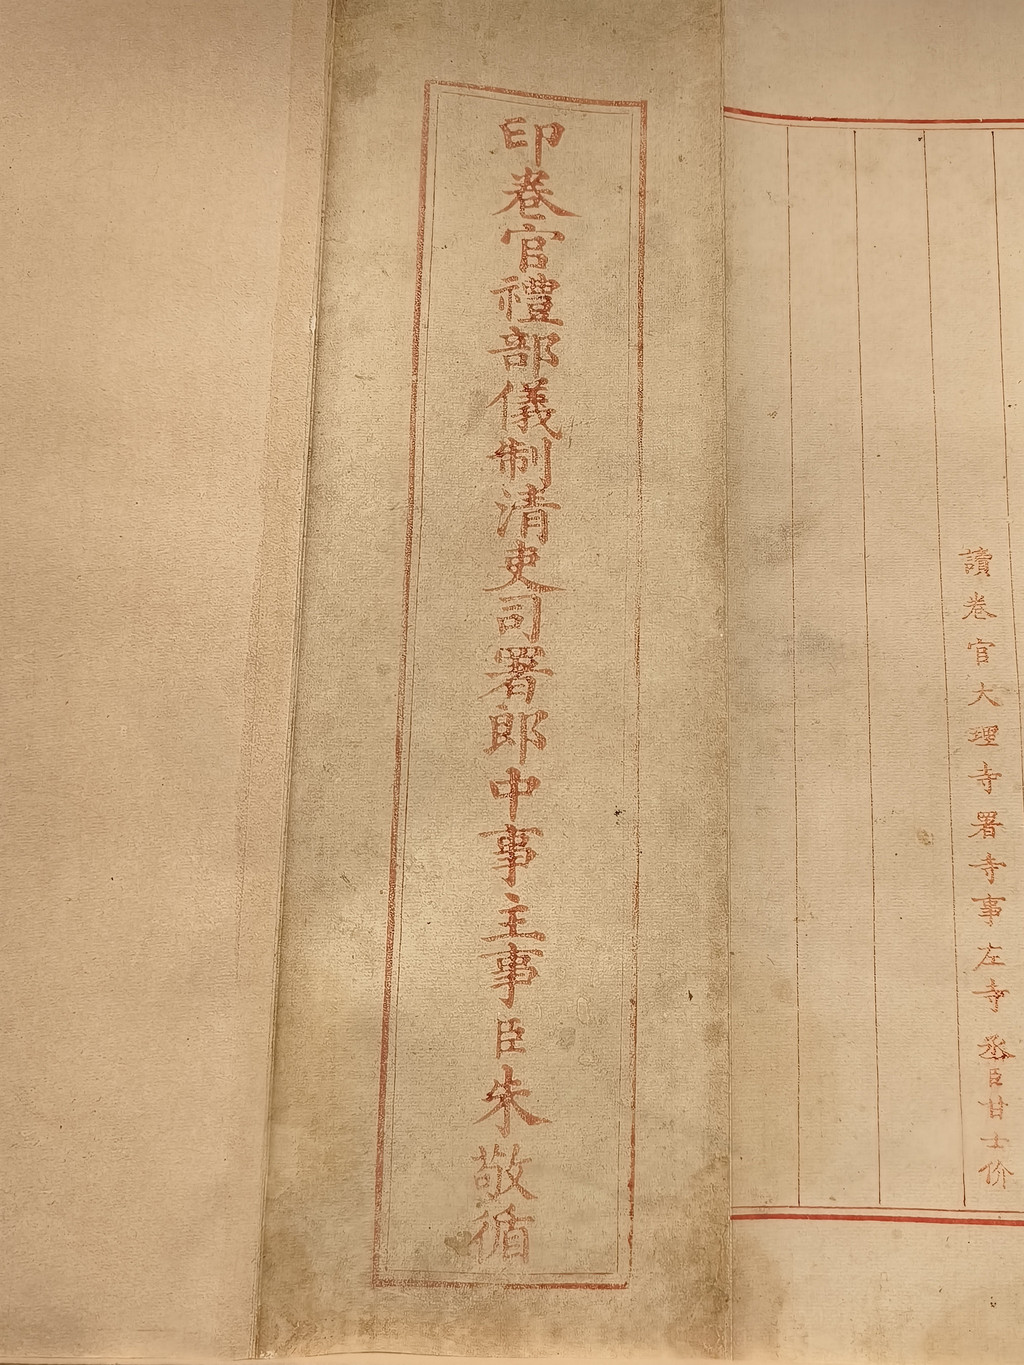 讀卷官大理寺署寺事左寺丞臣甘士价
印卷官禮部儀制清吏司署郎中事主事臣朱敬循